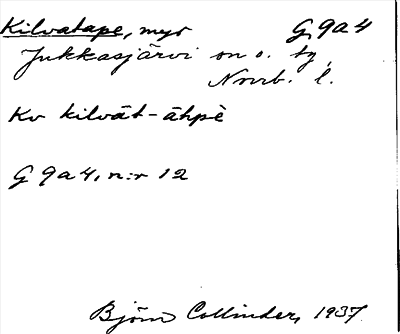 Kilvatape, myr G 9a4
Jukkasjärvi sn o. tg,
Norrb. l.
Kv kilvät-āhpè
G 9a4, n:r 12
Björn Collinder, 1937